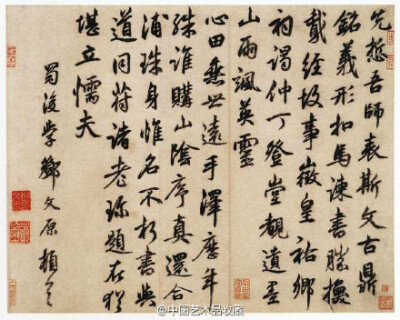 先哲吾師表斯文古鼎
銘義形扣馬諫書勝換
鵝經故事徵皇祐鄉
祠謁仲丁登堂觀遺墨
山雨颯英靈
心田無世遠手澤歷年
殊誰購山陰序真還合
浦珠身惟名不朽書與
道同符諸老珎題在猶
堪立懦夫
蜀後學鄧文原頓首
@中国艺术品收藏